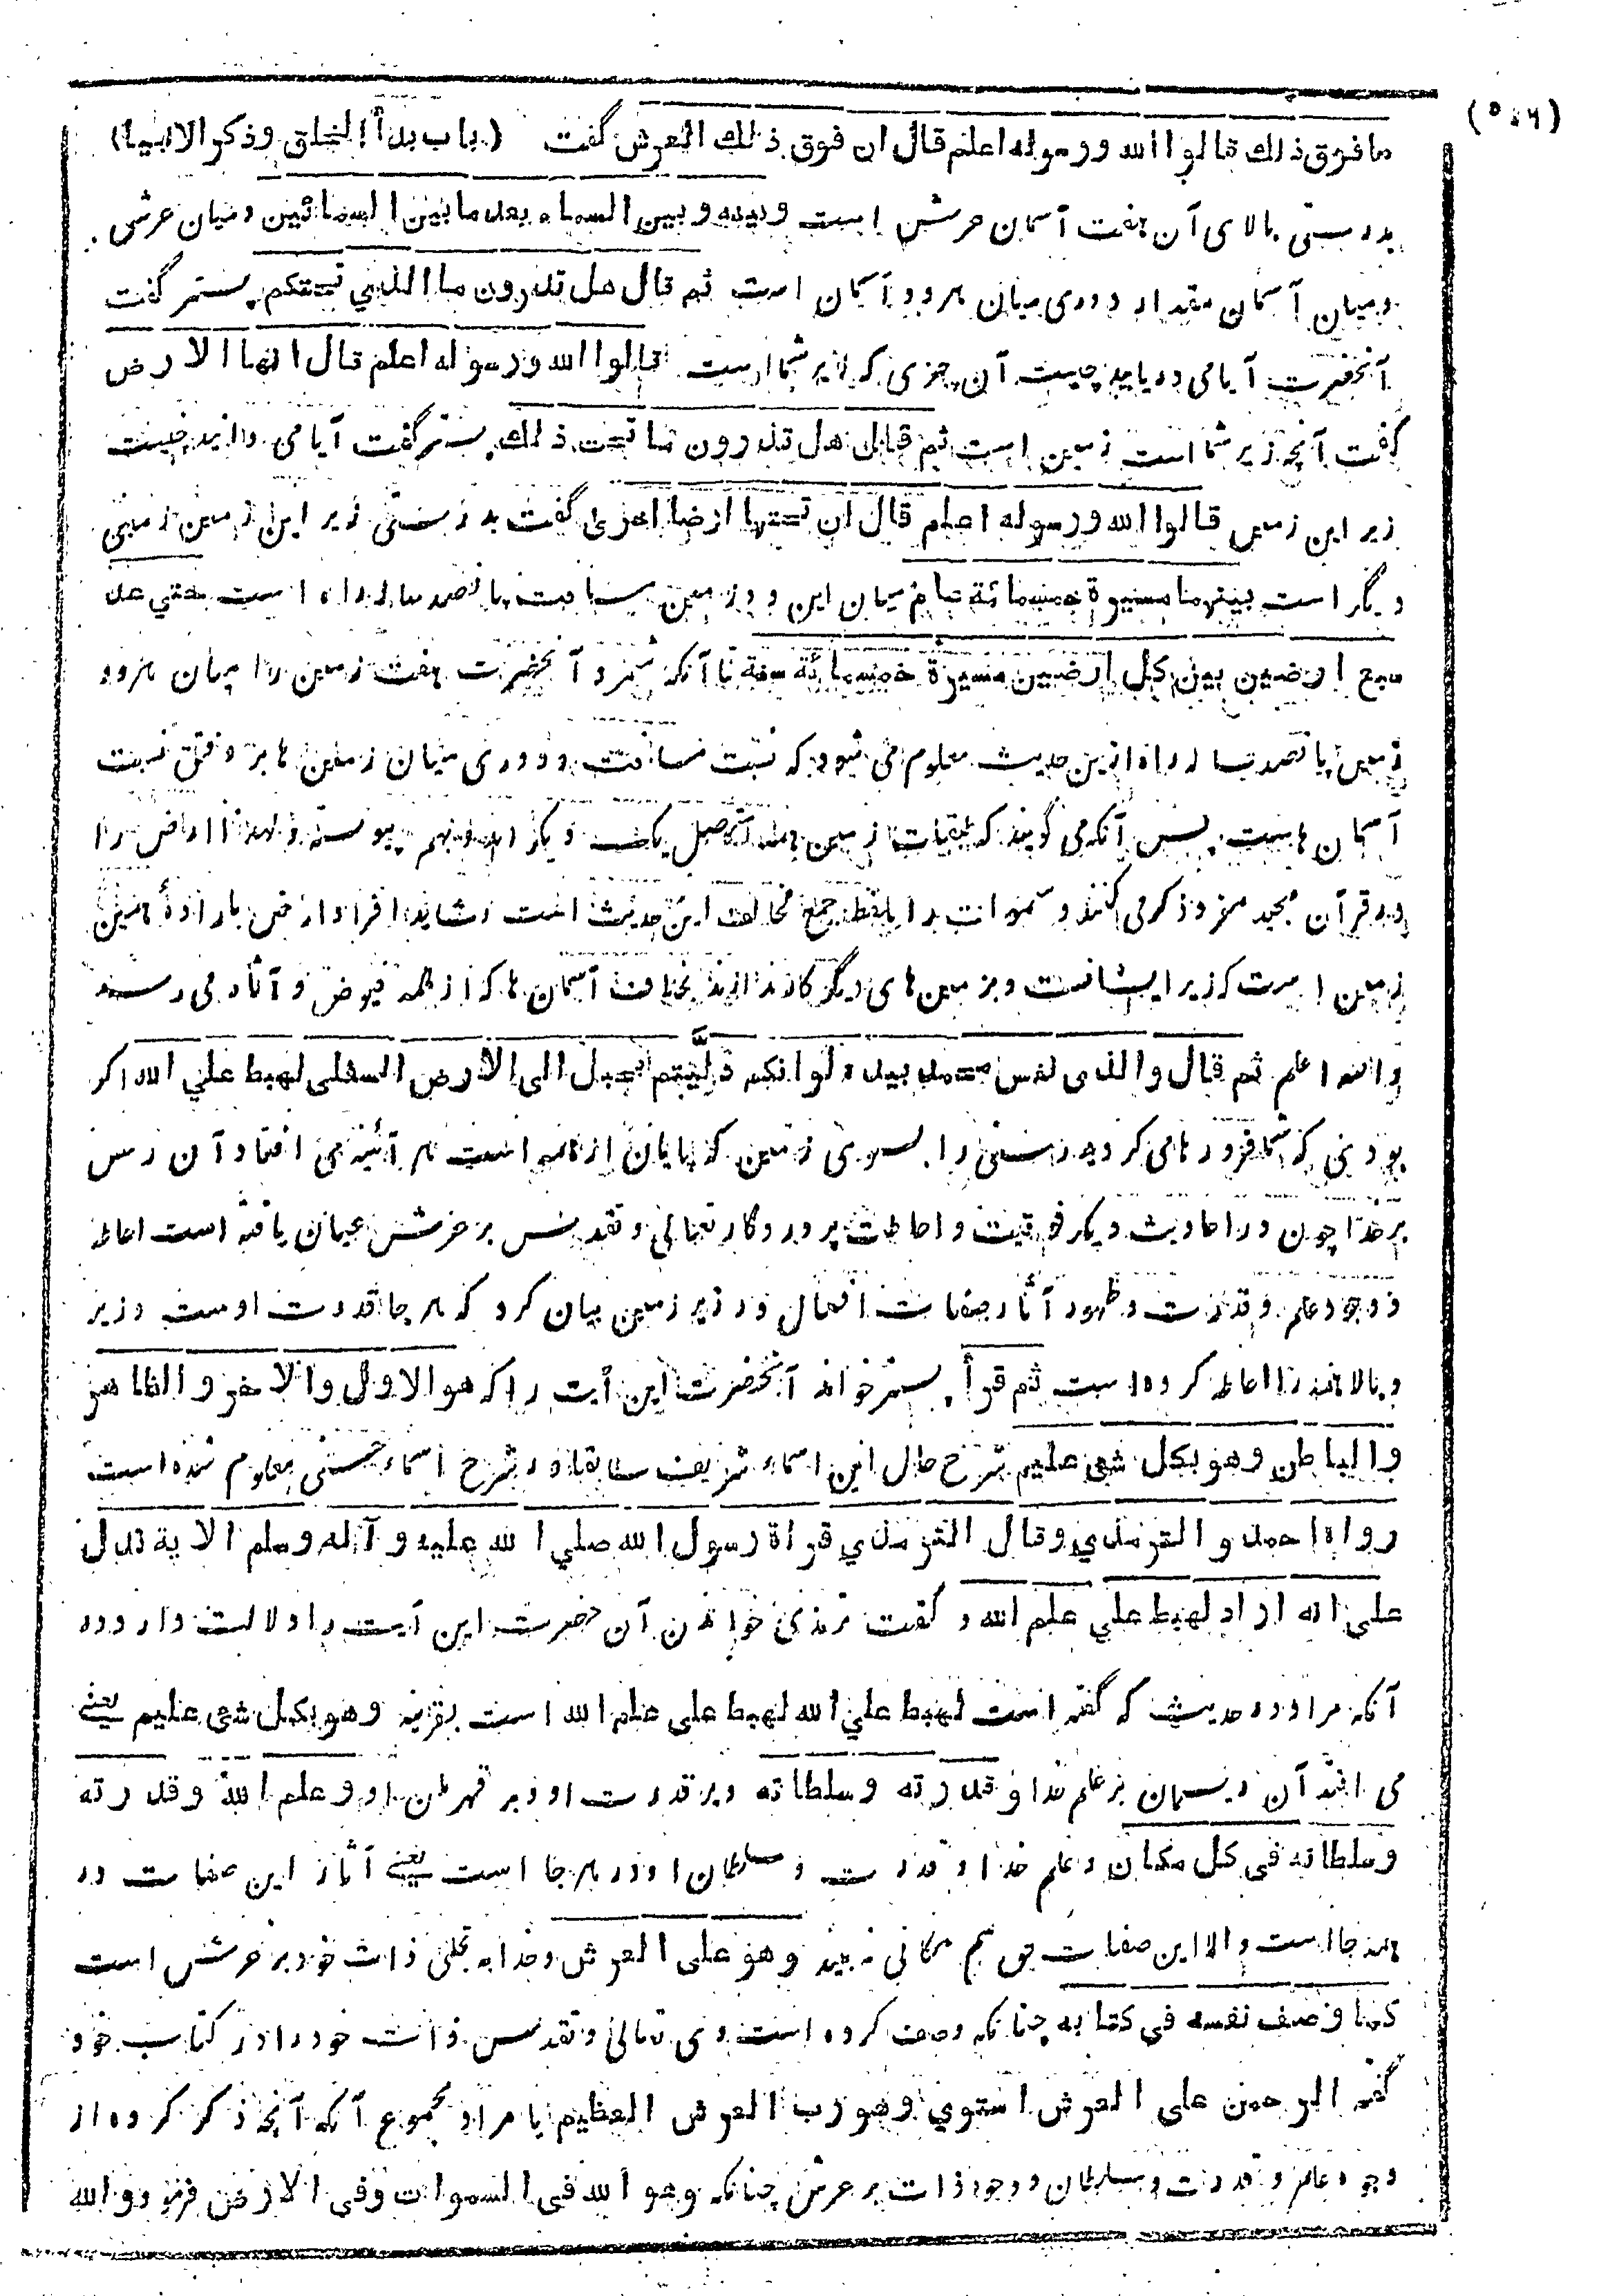 (٥٤٦)
ما فوق ذلك قالوا الله ورسوله اعلم قال ان فوق ذلك العرش گفت (باب بدأ الخلق وذكر الانبيا)
بدرستی بالای آن هفت آسمان عرش است وبينه وبين السماء بعد ما بين السمائين ومیان عرش
ومیان آسمان مقدار دوری میان هر دو آسمان است ثم قال هل تدرون ما الذي تحتكم پستر گفت
آنحضرت آیا می دریابید چیست آن چیزی که زیر شما است قالوا الله ورسوله اعلم قال انها الارض
گفت آنچه زیر شما است زمین است ثم قال هل تدرون ما تحت ذلك پستر گفت آیا می دانید چیست
زیر این زمین قالوا الله ورسوله اعلم قال ان تحتها ارضا اخرى گفت بدرستی زیر این زمین زمینی
دیگر است بينهما مسيرة خمسمائة عام میان این دو زمین مسافت پانصد ساله راه است حتي عد
سبع ارضين بين كل ارضين مسيرة خمسمائة سنة تا آنکه شمرد آنحضرت هفت زمین را میان هر دو
زمین پانصد ساله راه ازین حدیث معلوم می شود که نسبت مسافت و دوری میان زمین ها بر وفق نسبت
آسمان هاست پس آنکه می گویند که طبقات زمین همه متصل یک دیگر اند و بهم پیوسته ولهذا ارض را
در قرآن مجید مفرد ذکر می کنند و سموات را بلفظ جمع مخالف این حدیث است و شاید افراد ارض باراده همین
زمین است که زیر ایشانست و بزمین های دیگر کار ندارند بخلاف آسمان ها که از همه فیوض و آثار می رسد
والله اعلم ثم قال والذى نفس محمد بيده لو انكم دليتم بحبل الى الارض السفلى لهبط علي الله اگر
بودنی که شما فرود رها می کردید رسنی را بسوی زمین که پایان از همه است هر آئینه می افتاد آن رسن
بر خدا چون در احادیث دیگر فوقیت و احاطت پروردگار تعالی و تقدس بر عرش بیان یافته است احاطه
وجود و علم و قدرت و ظهور آثار صفات افعال در زیر زمین بیان کرد که هر جا قدرت اوست و زیر
و بالا همه را احاطه کرده است ثم قرأ پستر خواند آنحضرت این آیت را که هو الاول والاخر والظاهر
والباطن وهو بكل شي عليم شرح حال این اسماء شریف سابقا در شرح اسماء حسنی معلوم شده است
رواه احمد والترمذي وقال الترمذي قراة رسول الله صلي الله عليه وآله وسلم الاية تدل
على انه اراد لهبط علي علم الله و گفت ترمذی خواندن آن حضرت این آیت را دلالت دارد در
آنکه مراد در حدیث که گفته است لهبط علي الله لهبط على علم الله است بقرینه وهو بكل شي عليم یعنی
می افتد آن ریسمان بر علم خدا وقدرته وسلطانه و بر قدرت او و بر قهرمان او وعلم الله وقدرته
وسلطانه في كل مكان و علم خدا و قدرت و سلطان او در هر جا است یعنی آثار این صفات در
همه جا است والا این صفات حق هم مکانی نیند وهو على العرش و خدا به تجلی ذات خود بر عرش است
كما وصف نفسه في كتابه چنانکه وصف کرده است وی تعالی و تقدس ذات خود را در کتاب خود
گفته الرحمن على العرش استوي وهو رب العرش العظيم یا مراد مجموع آنکه آنچه ذکر کرده از
وجود علم و قدرت و سلطان و وجود ذات بر عرش چنانکه وهو الله في السموات وفي الارض فرمود والله